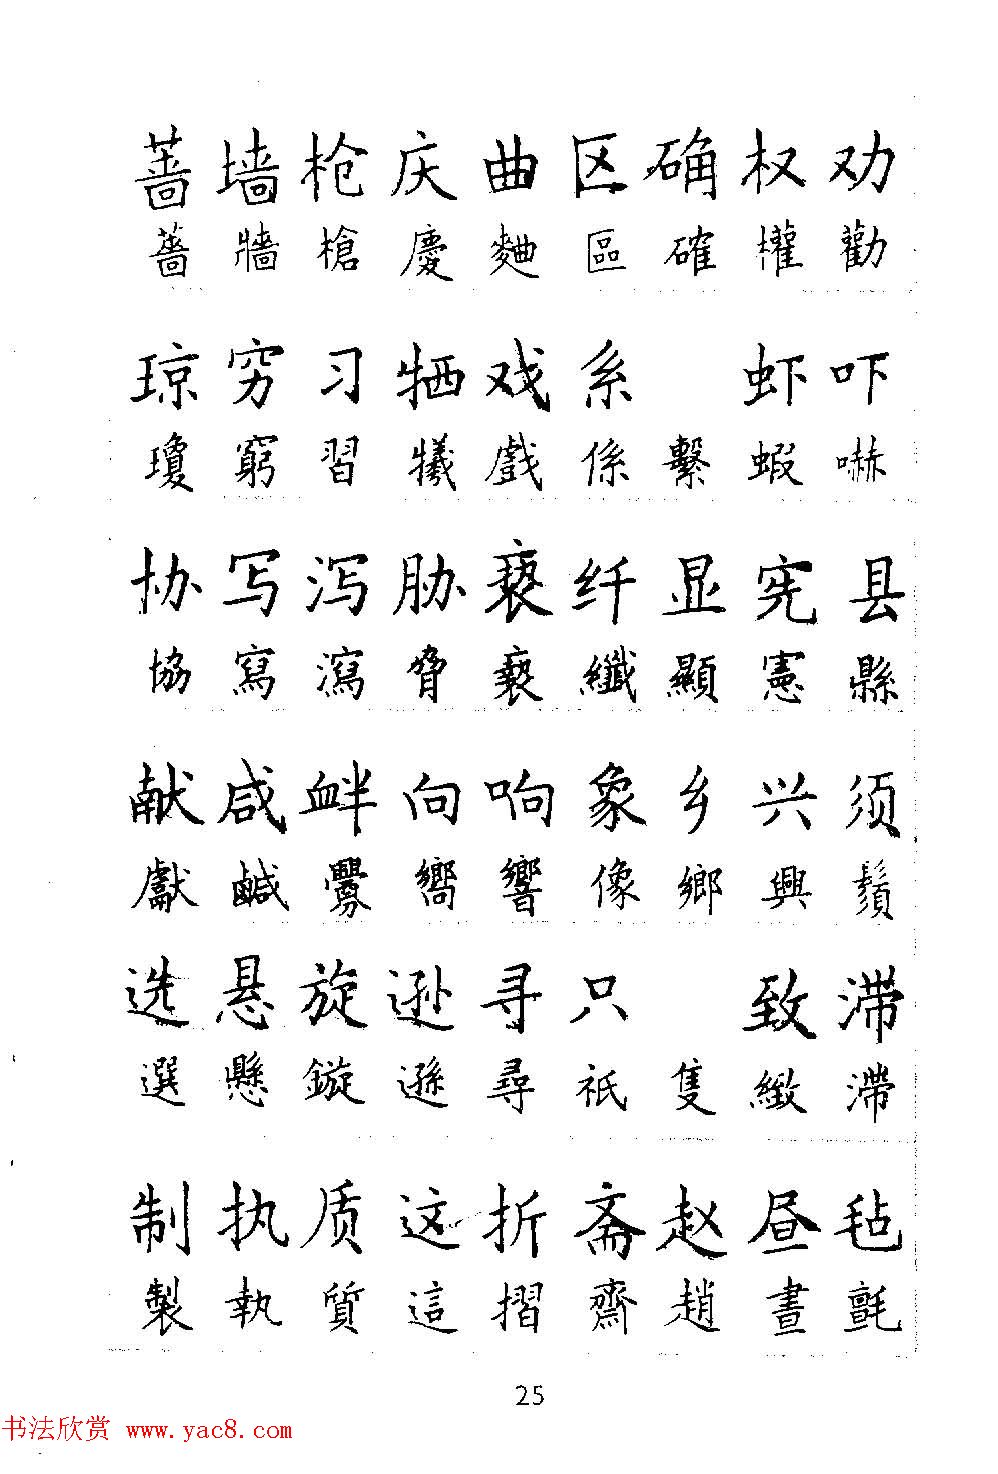 蔷墙枪庆曲区确权劝
薔牆槍慶麯區確權勸
琼穷习牺戏系 虾吓
瓊窮習犧戲係繫蝦嚇
协写泻胁亵纤显宪县
協寫瀉脅褻纖顯憲縣
献咸衅向响象乡兴须
獻鹹釁嚮響像鄉興鬚
选悬旋逊寻只 致滞
選懸鏇遜尋祇隻緻滯
制执质这折斋赵昼毡
製執質這摺齋趙晝氈
25
书法欣赏 www.yac8.com